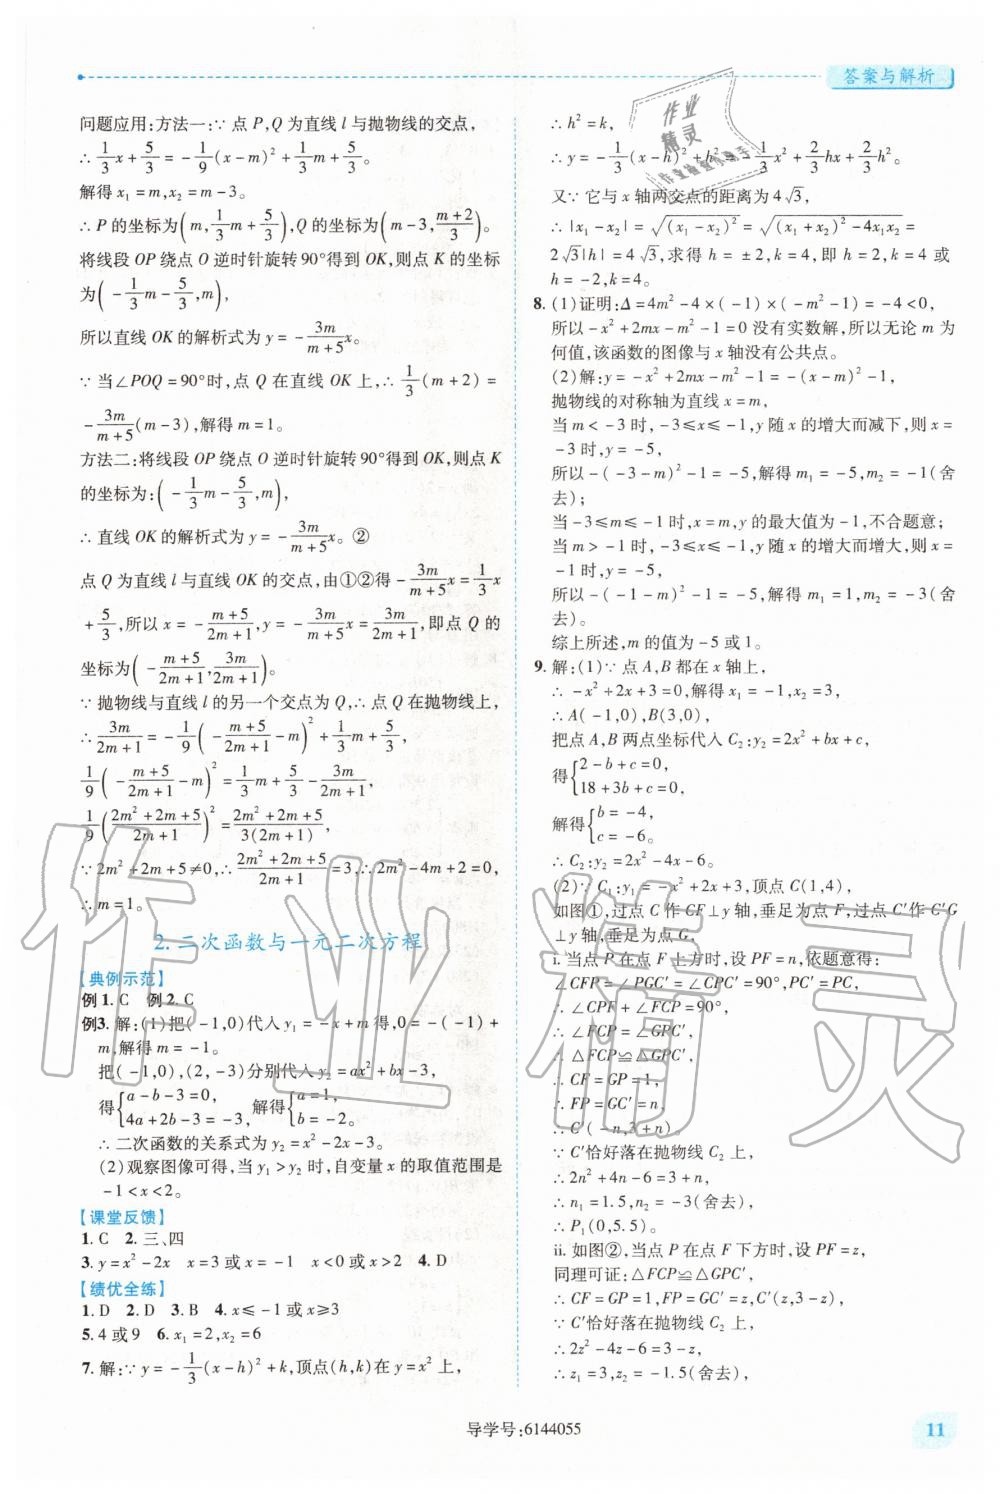 答案与解析
问题应用:方法一:∵点P,Q为直线l与抛物线的交点,
∴1/3x+5/3=-1/9(x-m)²+1/3m+5/3。
解得x₁=m,x₂=m-3。
∴P的坐标为(m,1/3m+5/3),Q的坐标为(m-3,(m+2)/3)。
将线段OP绕点O逆时针旋转90°得到OK,则点K的坐标
为(-1/3m-5/3,m),
所以直线OK的解析式为y=-3m/(m+5)x。
∵当∠POQ=90°时,点Q在直线OK上,∴1/3(m+2)=
-3m/(m+5)(m-3),解得m=1。
方法二:将线段OP绕点O逆时针旋转90°得到OK,则点K
的坐标为:(-1/3m-5/3,m),
∴直线OK的解析式为y=-3m/(m+5)x。②
点Q为直线l与直线OK的交点,由①②得-3m/(m+5)x=1/3x
+5/3,所以x=-(m+5)/(2m+1),y=-3m/(m+5)x=3m/(2m+1),即点Q的
坐标为(-(m+5)/(2m+1),3m/(2m+1))。
∵抛物线与直线l的另一个交点为Q,∴点Q在抛物线上,
∴3m/(2m+1)=-1/9(-(m+5)/(2m+1)-m)²+1/3m+5/3,
1/9(-(m+5)/(2m+1)-m)²=1/3m+5/3-3m/(2m+1)
1/9((2m²+2m+5)/(2m+1))²=(2m²+2m+5)/(3(2m+1))
∵2m²+2m+5≠0,∴(2m²+2m+5)/(2m+1)=3,∴2m²-4m+2=0,
∴m=1。
2.二次函数与一元二次方程
【典例示范】
例1.C 例2.C
例3.解:(1)把(-1,0)代入y₁=-x+m得,0=-(-1)+
m,解得m=-1。
把(-1,0),(2,-3)分别代入y₂=ax²+bx-3,
得{a-b-3=0, 4a+2b-3=-3, 解得{a=1, b=-2。
∴二次函数的关系式为y₂=x²-2x-3。
(2)观察图像可得,当y₁>y₂时,自变量x的取值范围是
-1<x<2。
【课堂反馈】
1.C 2.三、四
3.y=x²-2x x=3或x=-1 x<0或x>2 4.D
【绩优全练】
1.D 2.D 3.B 4.x≤-1或x≥3
5.4或9 6.x₁=2,x₂=6
7.解:∵y=-1/3(x-h)²+k,顶点(h,k)在y=x²上,
∴h²=k,
∴y=-1/3(x-h)²+h²=-1/3x²+2/3hx+2/3h²。
又∵它与x轴两交点的距离为4√3,
∴|x₁-x₂|=√((x₁-x₂)²)=√((x₁+x₂)²-4x₁x₂)=
2√3|h|=4√3,求得h=±2,k=4,即h=2,k=4或
h=-2,k=4。
8.(1)证明:Δ=4m²-4×(-1)×(-m²-1)=-4<0,
所以-x²+2mx-m²-1=0没有实数解,所以无论m为
何值,该函数的图像与x轴没有公共点。
(2)解:y=-x²+2mx-m²-1=-(x-m)²-1,
抛物线的对称轴为直线x=m,
当m<-3时,-3≤x≤-1,y随x的增大而减下,则x=
-3时,y=-5,
所以-(-3-m)²-1=-5,解得m₁=-5,m₂=-1(舍
去);
当-3≤m≤-1时,x=m,y的最大值为-1,不合题意;
当m>-1时,-3≤x≤-1,y随x的增大而增大,则x=
-1时,y=-5,
所以-(-1-m)²-1=-5,解得m₁=1,m₂=-3(舍
去)。
综上所述,m的值为-5或1。
9.解:(1)∵点A,B都在x轴上,
∴-x²+2x+3=0,解得x₁=-1,x₂=3,
∴A(-1,0),B(3,0),
把点A,B两点坐标代入C₂:y₂=2x²+bx+c,
得{2-b+c=0, 18+3b+c=0,
解得{b=-4, c=-6。
∴C₂:y₂=2x²-4x-6。
(2)∵C₁:y₁=-x²+2x+3,顶点C(1,4),
如图①,过点C作CF⊥y轴,垂足为点F,过点C′作C′G
⊥y轴,垂足为点G,
i.当点P在点F上方时,设PF=n,依题意得:
∠CFP=∠PGC′=∠CPC′=90°,PC′=PC,
∴∠CPF+∠FCP=90°,
∴∠FCP=∠GPC′,
∴△FCP≌△GPC′,
∴CF=GP=1,
∴FP=GC′=n,
∴C′(-n,3+n)。
∵C′恰好落在抛物线C₂上,
∴2n²+4n-6=n+3,
∴n₁=1.5,n₂=-3(舍去),
∴P₁(0,5.5)。
ii.如图②,当点P在点F下方时,设PF=z,
同理可证:△FCP≌△GPC′,
∴CF=GP=1,FP=GC′=z,C′(z,3-z),
∵C′恰好落在抛物线C₂上,
∴2z²-4z-6=3-z,
∴z₁=3,z₂=-1.5(舍去),
导学号:6144055
11
作业精灵
作业精灵